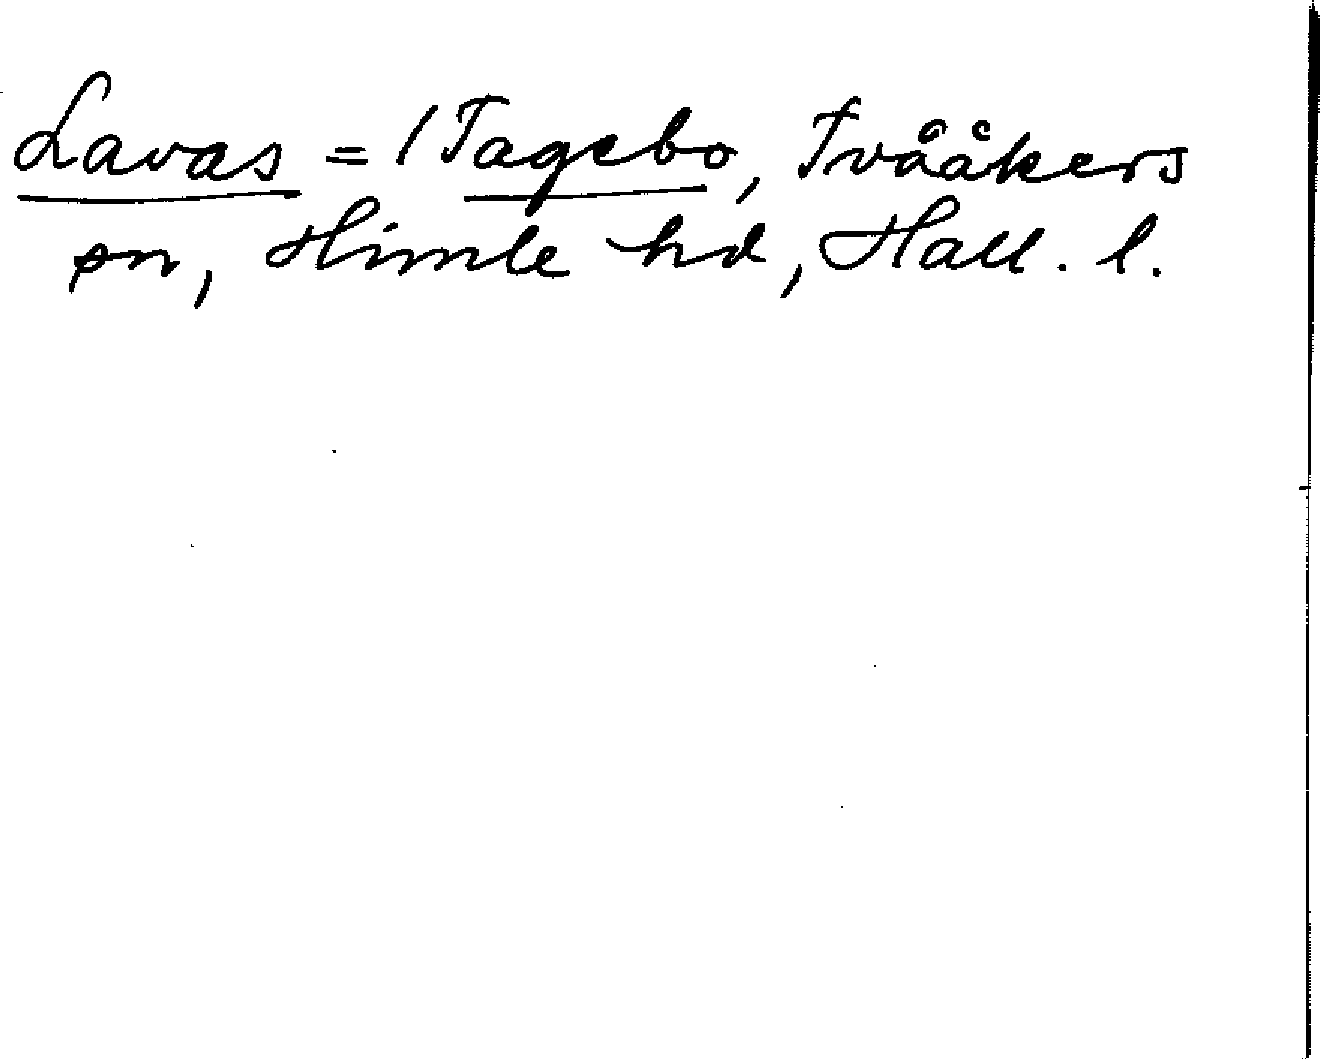 Lavas = / Tagebo, Tvååkers
sn, Himle hd, Hall. l.